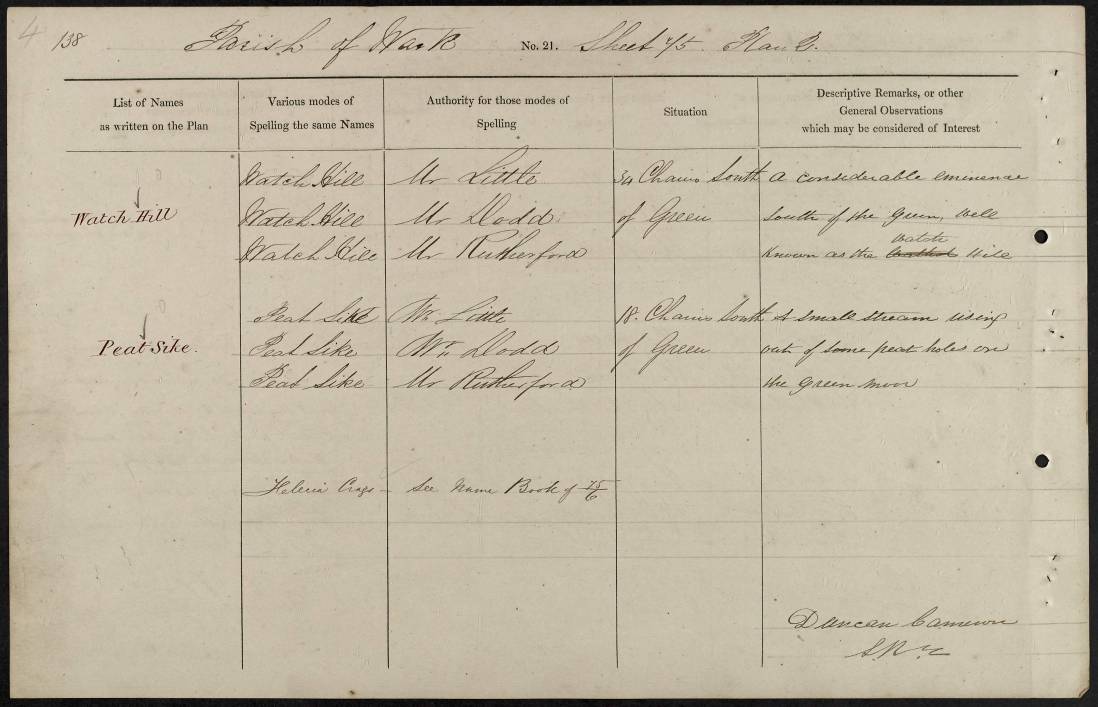 4
138
Parish of Wark No. 21. Sheet 75 Plan
List of Names
as written on the Plan
Various modes of
Spelling the same Names
Authority for those modes of
Spelling
Situation
Descriptive Remarks, or other
General Observations
which may be considered of Interest
Watch Hill
Watch Hill Mr Little 34 Chains South A considerable eminence
Watch Hill Mr Dodd of Green South of the Green, well
Watch Hill Mr Rutherford known as the Watch Hill
Peat Sike.
Peat Sike Wm Little 18. Chains South A small stream rising
Peat Sike Wm Dodd of Green out of some peat holes on
Peat Sike Mr Rutherford the Green moor
Crags - See Name Book of 75/6
Duncan Cameron